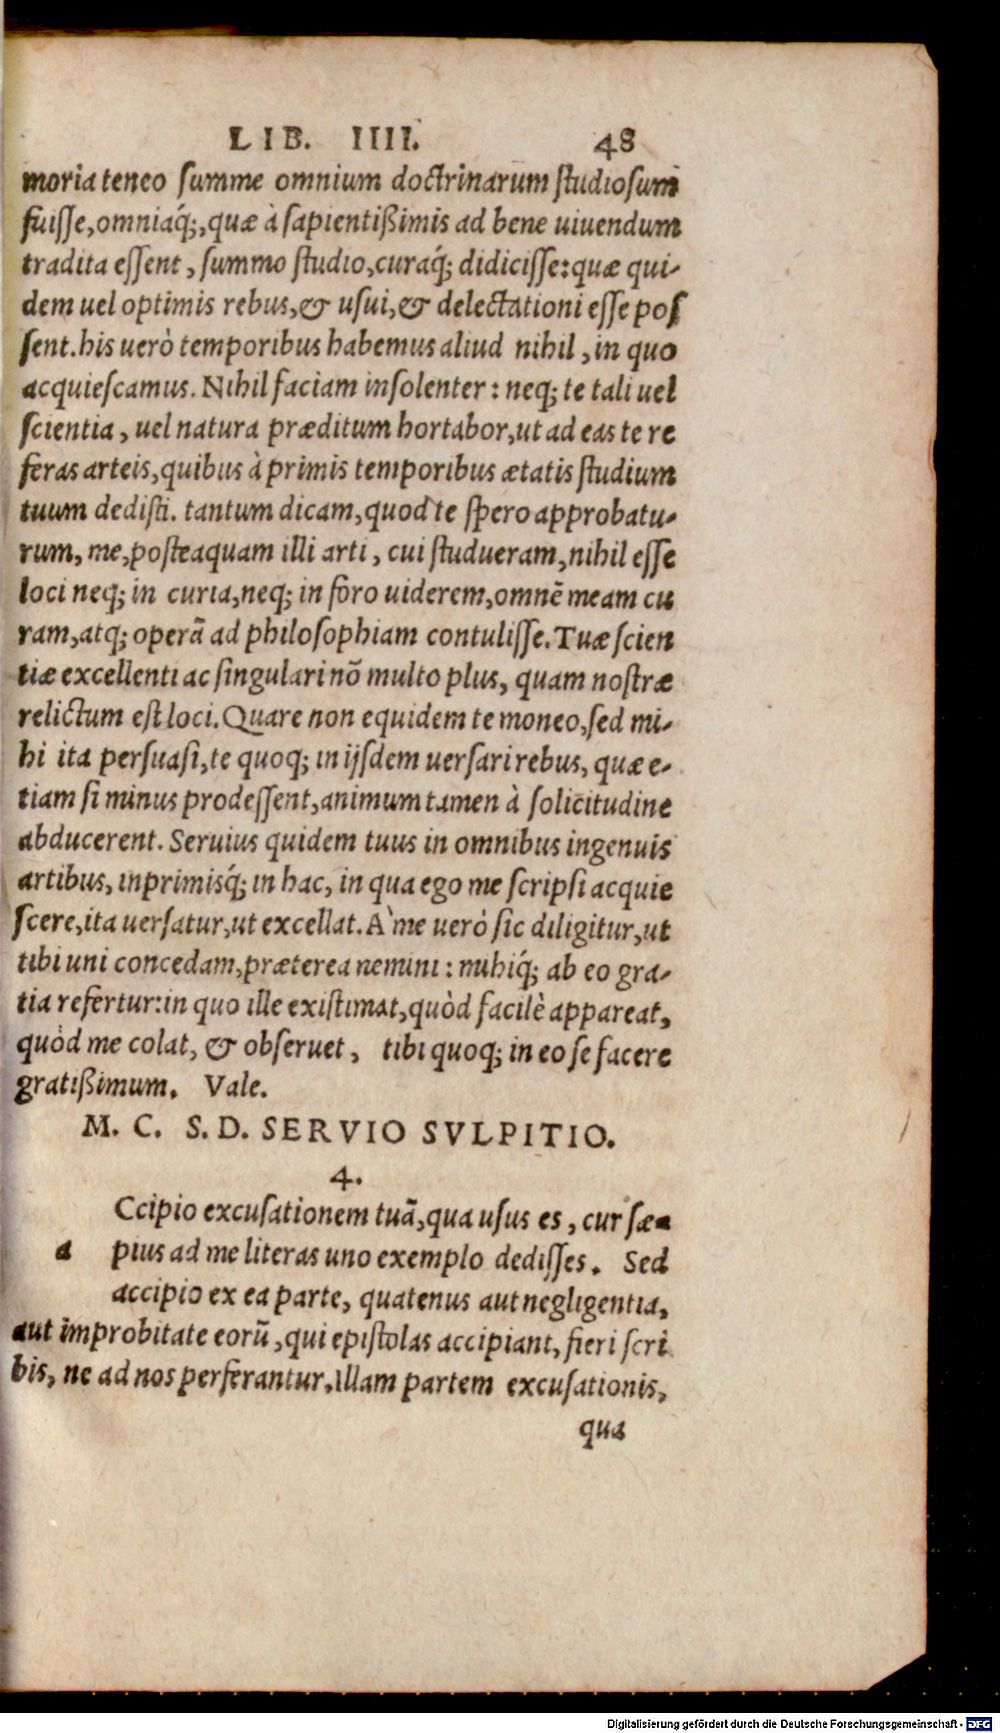 LIB. IIII. 48
moria teneo ſumme omnium doctrinarum ſtudioſum
fuiſſe, omniaq́;, quæ à ſapientißimis ad bene uiuendum
tradita eſſent, ſummo ſtudio, curaq́; didiciſſe: quæ qui-
dem uel optimis rebus, & uſui, & delectationi eſſe poſ
ſent. his uerò temporibus habemus aliud nihil, in quo
acquieſcamus. Nihil faciam inſolenter: neq; te tali uel
ſcientia, uel natura præditum hortabor, ut ad eas te re
feras arteis, quibus à primis temporibus ætatis ſtudium
tuum dediſti. tantum dicam, quod te ſpero approbatu-
rum, me, poſteaquam illi arti, cui ſtudueram, nihil eſſe
loci neq; in curia, neq; in foro uiderem, omnẽ meam cu
ram, atq; operã ad philoſophiam contuliſſe. Tuæ ſcien
tiæ excellenti ac ſingulari nõ multo plus, quam noſtræ
relictum eſt loci. Quare non equidem te moneo, ſed mi-
hi ita perſuaſi, te quoq; in ijſdem uerſari rebus, quæ e-
tiam ſi minus prodeſſent, animum tamen à ſolicitudine
abducerent. Seruius quidem tuus in omnibus ingenuis
artibus, inprimisq́; in hac, in qua ego me ſcripſi acquie
ſcere, ita uerſatur, ut excellat. A` me uerò ſic diligitur, ut
tibi uni concedam, præterea nemini: mihiq́; ab eo gra-
tia refertur: in quo ille exiſtimat, quòd facilè appareat,
quòd me colat, & obſeruet, tibi quoq; in eo ſe facere
gratißimum. Vale.
M. C. S. D. SERVIO SVLPITIO.
4.
Ccipio excuſationem tuã, qua uſus es, cur ſæ-
a pius ad me literas uno exemplo dediſſes. Sed
accipio ex ea parte, quatenus aut negligentia,
aut improbitate eorũ, qui epiſtolas accipiant, fieri ſcri
bis, ne ad nos perferantur. illam partem excuſationis,
qua
Digitalisierung gefördert durch die Deutsche Forschungsgemeinschaft - DFG